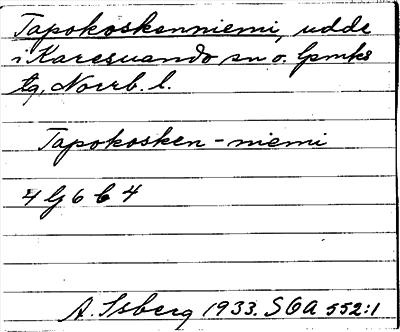 Tapokoskenniemi, udde
i Karesuando sn o. lpmks
tg, Norrb. l.
Tapokosken - niemi
4 lg 6 b 4
A. Isberg 1933. SOA 552:1